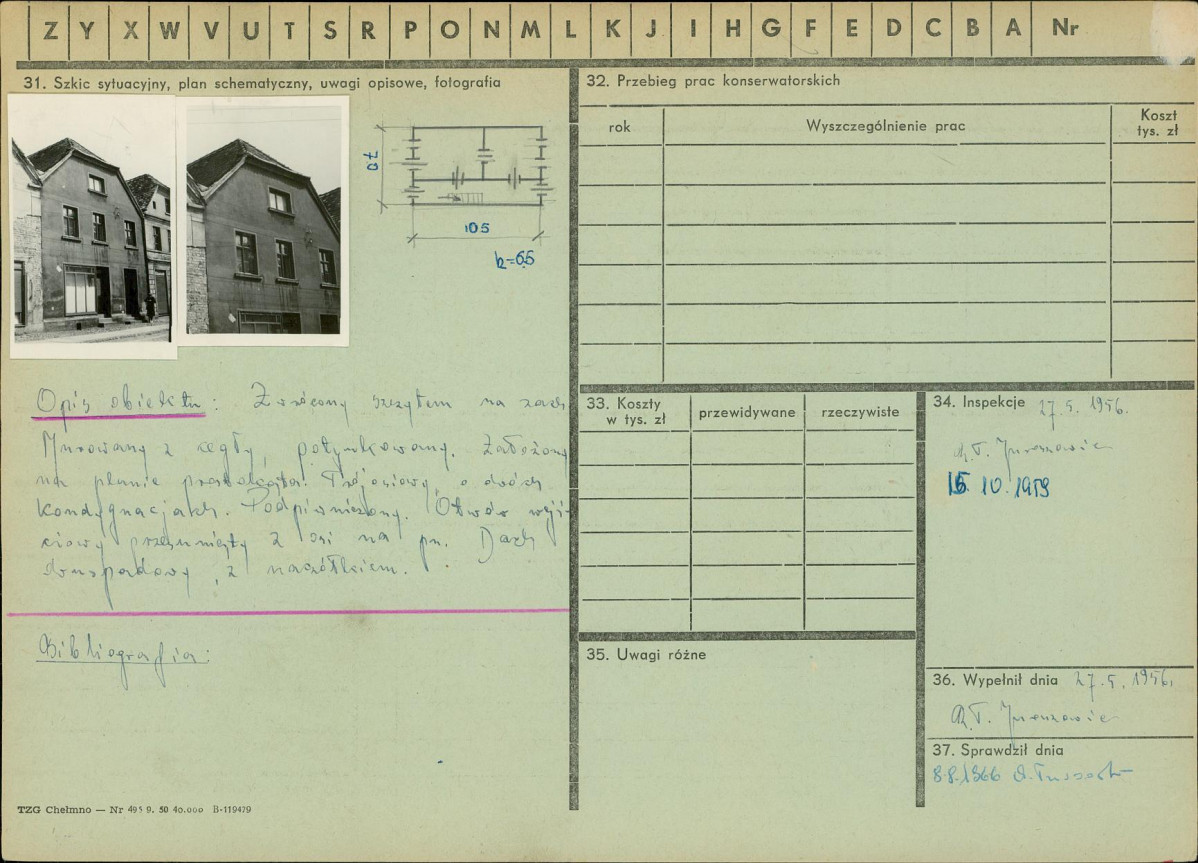 Z Y X W V U T S R P O N M L K J I H G F E D C B A Nr
31. Szkic sytuacyjny, plan schematyczny, uwagi opisowe, fotografia
70
105
h=65
Opis obiektu: Zwrócony szczytem na zach.
Murowany z cegły, potynkowany. Założony
na planie prostokąta. Trójosiowy, o dwóch
kondygnacjach. Podpiwniczony. Otwór wejś-
ciowy przesunięty z osi na pn. Dach
dwuspadowy, z naczółkiem.
Bibliografia:
TZG Chełmno — Nr 495 9. 50 40.000 B-119479
32. Przebieg prac konserwatorskich
rok Wyszczególnienie prac Koszt
tys. zł
33. Koszty
w tys. zł przewidywane rzeczywiste
34. Inspekcje 27.5. 1956.
15. 10. 1959
35. Uwagi różne
36. Wypełnił dnia 27.5. 1956.
37. Sprawdził dnia
8.8.1966